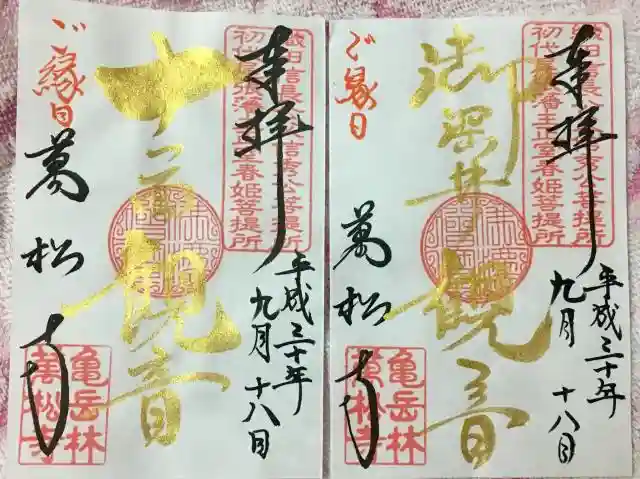 織田信長公父信秀公菩提所
初代尾張藩主正室春姫菩提所
奉拝
平成三十年
九月十八日
御深井観音
ご縁日
萬松寺
亀岳林
萬松寺
織田信長公父信秀公菩提所
初代尾張藩主正室春姫菩提所
奉拝
平成三十年
九月十八日
十一面観音
ご縁日
萬松寺
亀岳林
萬松寺